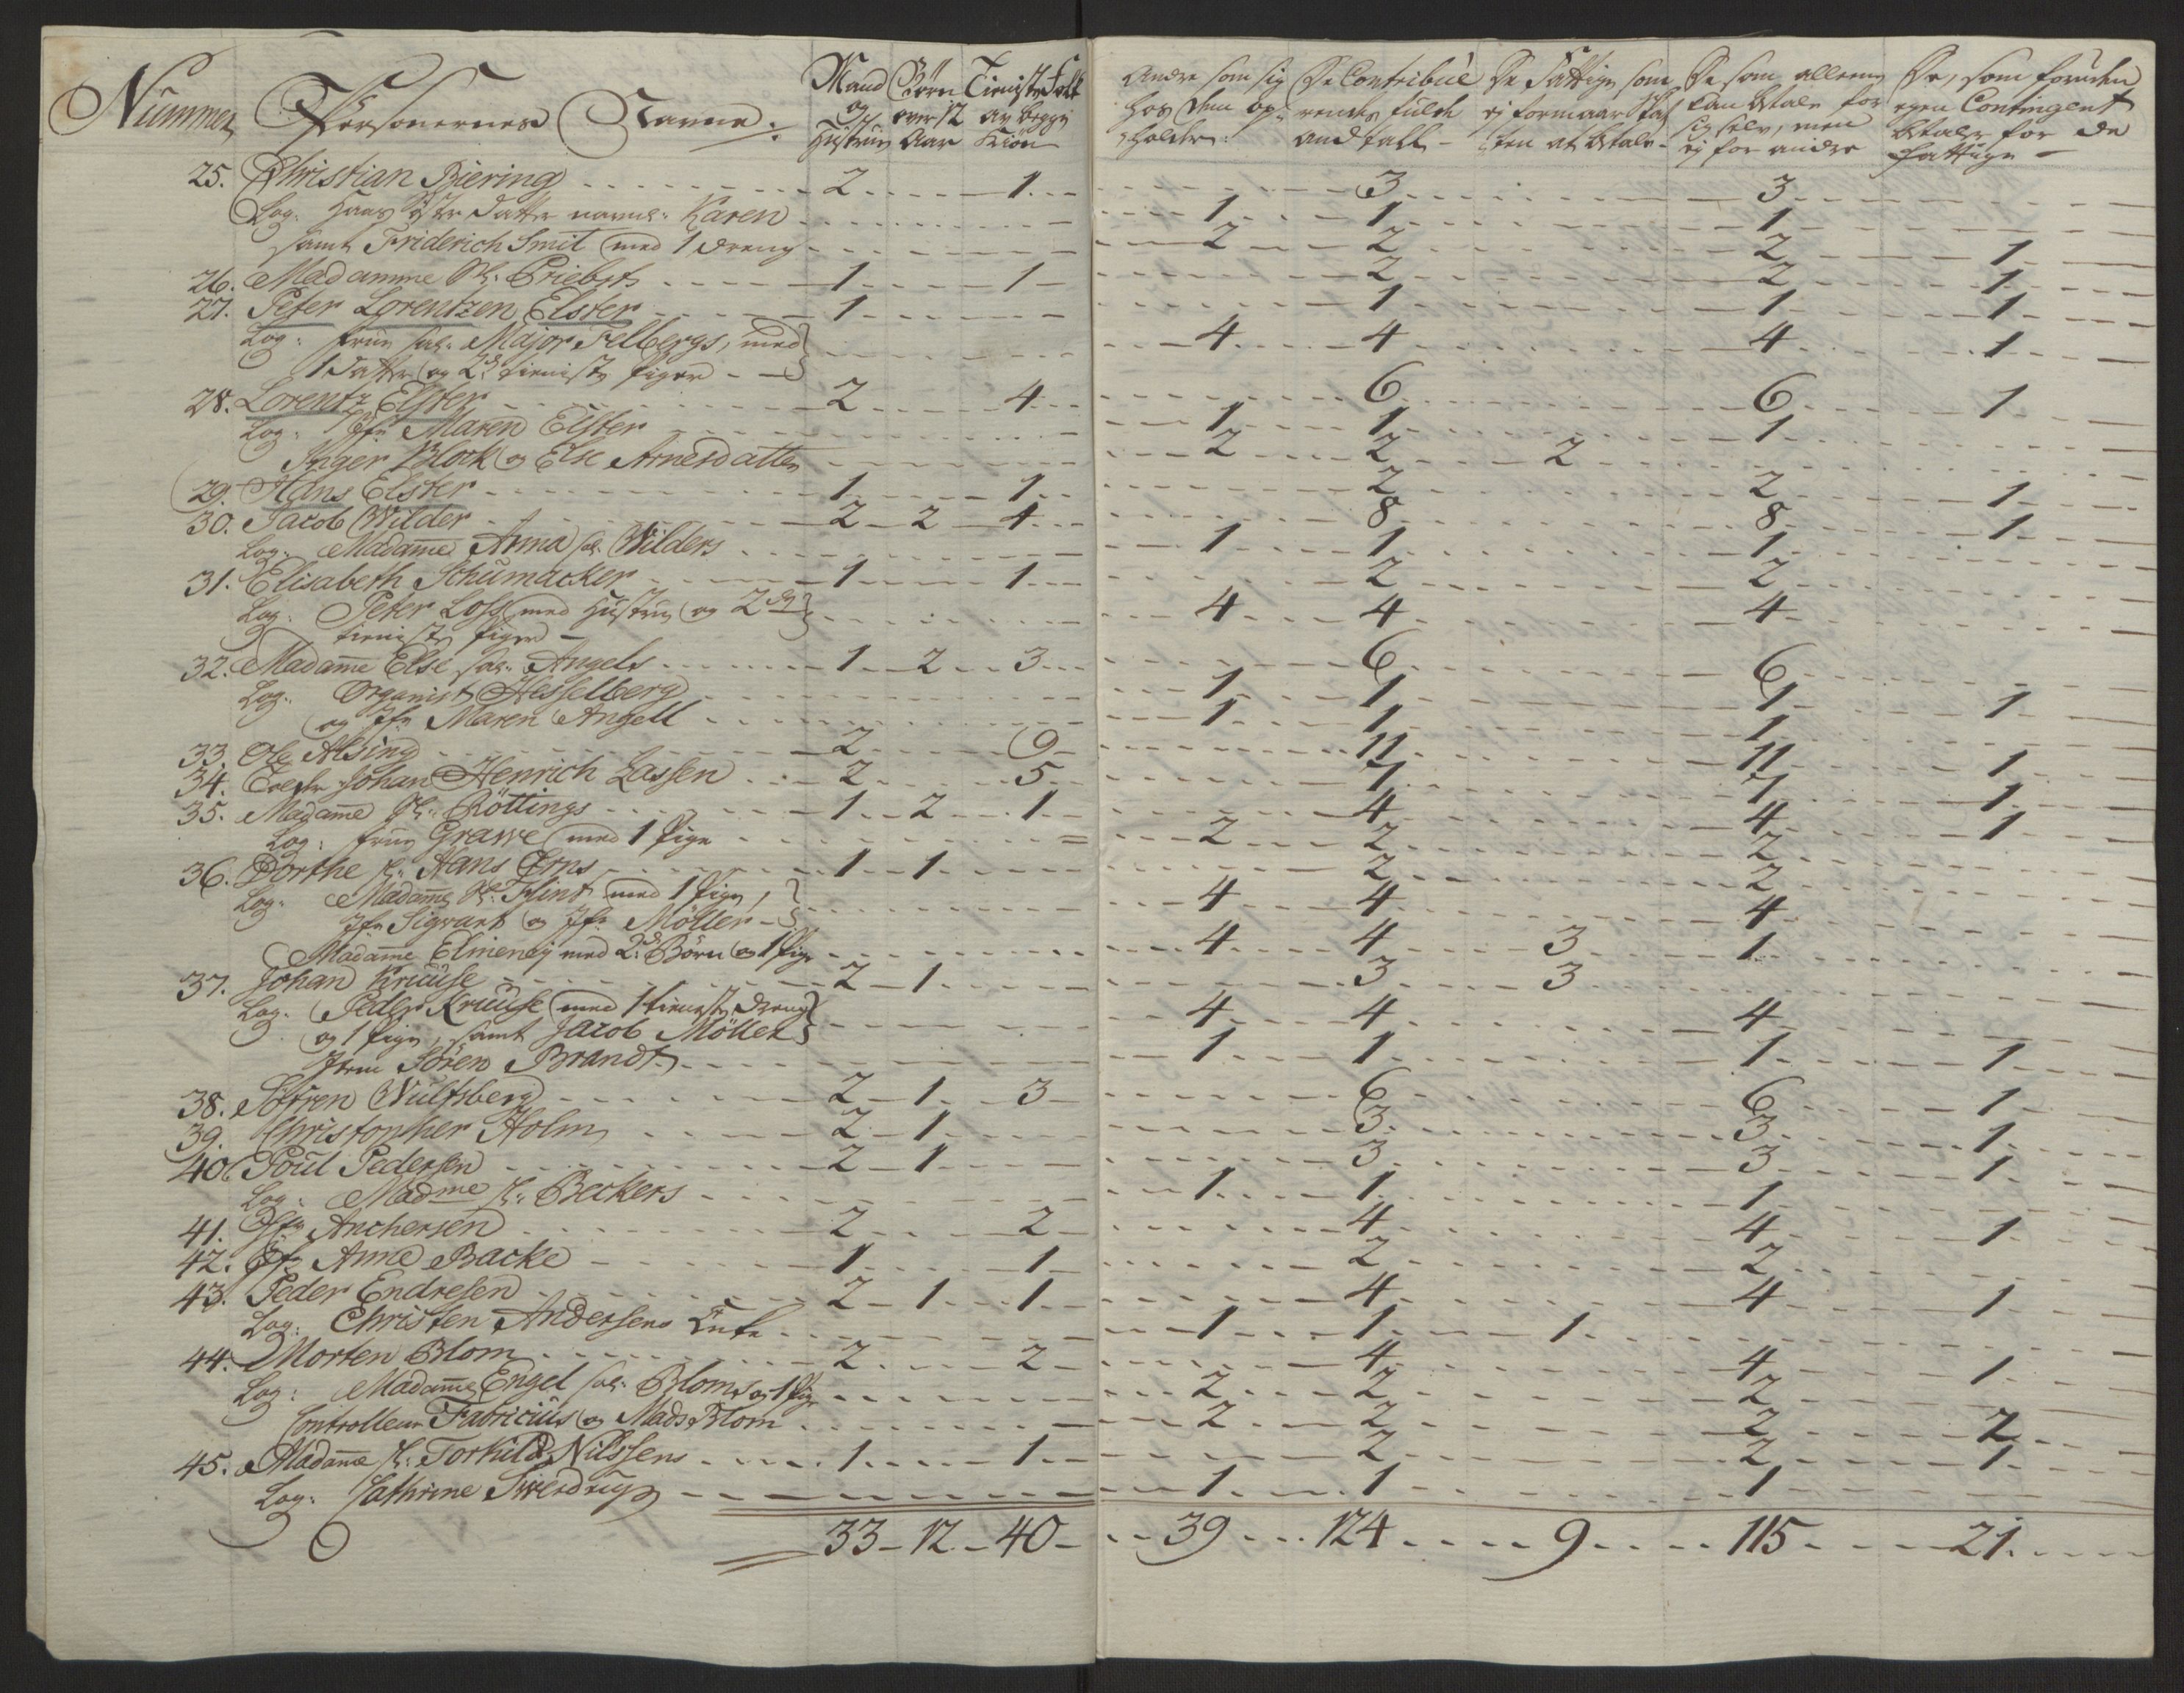 Nummer Persornernes Navne: Mand og Hustrue Børn over 12 Aar Tieniste Folk av begge Kiön Andre som sig hos dem op-holder: De Contribuerendes fulde Andtall De Fattige som ej formaar Skatten at betale De som alleene kan betale for sig selv, men ej for andre De, som foruden egen Contingent betaler for de fattige
25. Christian Biering 2 1 3 3
Log. hans Søster datter navnl. Karen 1 1 1
samt Friderich Smit med 1 dreng 2 2 2 1
26. Madamme Sl. Priebsts 1 1 2 2 1
27. Peter Lorentzen Elster 1 1 1 1
Log: frue sal. Major Felbergs, med 4 4 4 1
1 datter og 2de tieniste piger
28. Lorentz Elster 2 4 6 6 1
Log: Jfr Maren Elster 1 1 1
Inger Block og Else Arnesdatter 2 2 2
29. Hans Elster 1 1 2 2 1
30. Jacob Wilder 2 2 4 8 8 1
Log: Madame Anna sl. Wilders 1 1 1
31. Elisabeth Schumacker 1 1 2 2
Log: Peter Loss med Hustrue og 2de 4 4 4
tieniste piger
32. Madame Else sal. Angels 1 2 3 6 6
Log: Organist Hesselberg 1 1 1 1
og Jfr Maren Angell 1 1 1
33. Ole Alsing 2 9 11 11 1
34. Johan Henrich Lassen 2 5 7 7 1
35. Madame Sl. Böttings 1 2 1 4 4 1
Log: frue Grawe med 1 Pige 2 2 2
36. Dorthe Sl. Hans Erns 1 1 2 2
Log: Madame Sl. Flint med 1 Pige, 4 4 4
Jfr Sigvart og Jfr Möller
Madame Elmenej med 2de Börn og 1 Pige 4 4 3 1
37. Johan Kruuse 2 1 3 3
Log. Peder Kruuse med 1 tieneste dreng 4 4 4
og 1 Pige, samt Jacob Möller
Item Sören Brandt 1 1 1 1
38. Sörren Wulfsberg 2 1 3 6 6 1
39. Christopher Holm 2 1 3 3 1
40. Poul Pedersen 2 1 3 3 1
Log: Madme Sl. Beckers 1 1 1
41. Hr Anchersen 2 2 4 4 1
42. Jfr Anne Backe 1 1 2 2
43. Peder Endresen 2 1 1 4 4 1
Log: Christen Andersens Enke 1 1 1
44. Morten Blom 2 2 4 4 1
Log: Madame Engel sal. Bloms og 1 Pige 2 2 2
Controlleur Fabricius og Mads Blom 2 2 2 2
45. Madame Sl. Torkild Nilssens 1 1 2 2 1
Log: Cathrine Swerdrup 1 1 1
33 12 40 39 124 9 115 21